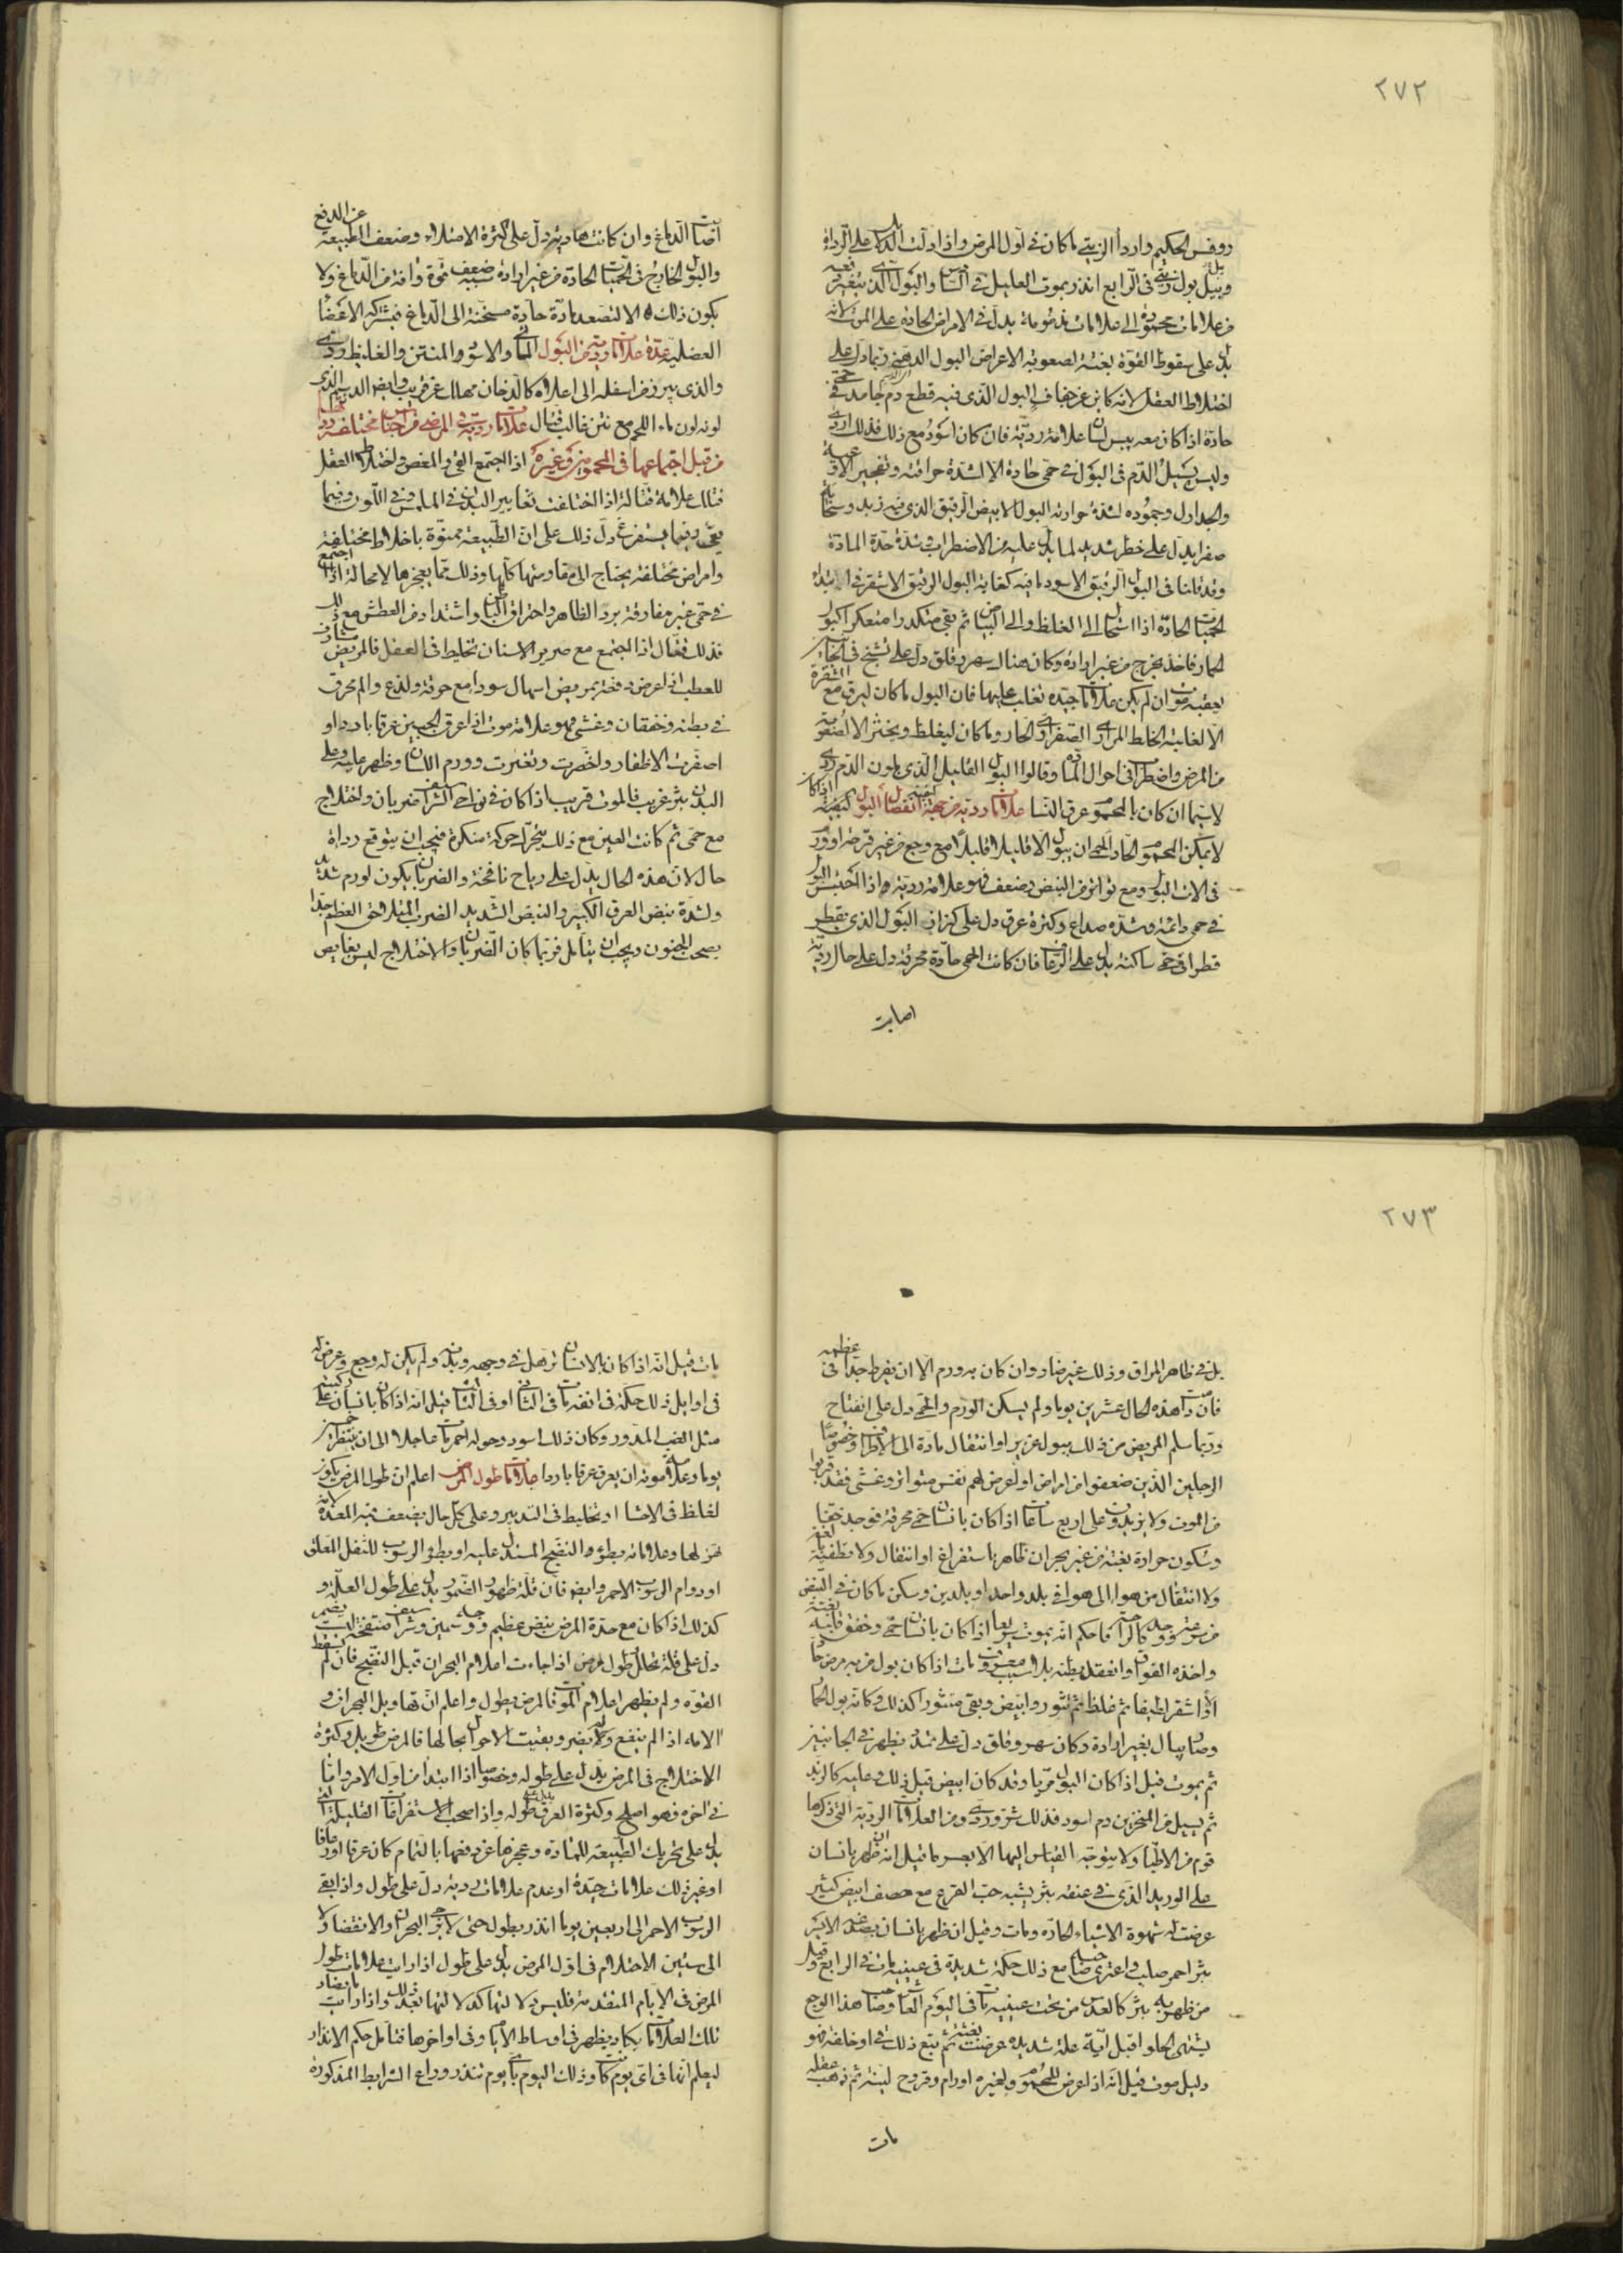 ٢٧٢
روفس الحكيم واردأ الزيتي ما كان في اول المرض واذا دلت الدلائل على الرداءة
وبيل بول زيتي في الرابع انذر بموت العليل في السابع والبول الذي يتغير
من علامات محمودة الى علامات مذمومة يدل في الامراض الحادة على الموت لانه
يدل على سقوط القوة بغتة لصعوبة الاعراض البول الدهني ربما دل على
اختلاط العقل لانه كاين عن جفاف البول الذي فيه قطع دم جامد في حمى
حادة اذا كان معه يبس لسان علامة ردية فان كان اسود مع ذلك فذلك اردى
وليس يسيل الدم في البول في حمى حادة الا لشدة حرافته وتفجير الاوعية
والجداول وجموده لشدة حرارته البول الابيض الرقيق الذي فيه زبد وسحابة
صفرا يدل على خطر شديد لما يدل عليه من الاضطراب وشدة حدة المادة
وقد قلنا في البول الرقيق الاسود ما فيه كفاية البول الرقيق الاشقر في ابتداء
الحميات الحادة اذا استحال الى الغلظ والى البياض ثم بقي متكدرا متعكرا كبول
الحمار فاخذ يخرج من غير ارادة وكان هناك سهر وقلق دل على تشنج في الجانبين
يعقبه موت ان لم يكن علامات جيدة تغلب عليها فان البول ما كان ليرق مع الشقرة
الا لغلبة الخلط المراري الصفراوي الحار وما كان ليغلظ ويخثر الا لصعوبة
من المرض واضطراب في احوال المادة وقالوا البول القليل الذي بلون الدم ردي
لاسيما ان كان بالمحموم عرق النسا علامات ردية من جهة كيفية انفصال البول اذا كان
لا يمكن المحموم الحاد الحمى ان يبول الا قليلا قليلا مع وجع من غير قرحة او ورم
في الات البول ومع تواتر من النبض وضعف فهو علامة ردية واذا احتبس البول
في حمى دائمة وشدة صداع وكثرة عرق دل على كزاز البول الذي يقطر
قطرا في حمى ساكنة يدل على الرعاف فان كانت الحمى حادة محرقة دل على حال ردية
اصابت
اصابت الدماغ وان كانت هادية دل على كثرة الامتلاء وضعف الطبيعة عن الدفع
والبول الخارج في الحميات الحادة من غير ارادة سببه ضعف قوة وافة من الدماغ ولا
يكون ذلك الا لتصعد مادة حادة مسخنة الى الدماغ فيشركه الاعضا
العضلية عدة علامات ردية من البول المائي والاسود والمنتن والغليظ ردي
والذي يبرز من اسفله الى اعلاه كالدخان مهلك عن قريب وايضا الدسم الذي
لونه لون ماء اللحم مع نتن غالب قتال علامات ردية في المرضى من اجناس مختلفة ردية
من قبل اجتماعها في المحمومين وغيره اذا اجتمع القي والمغص واختلاط العقل
فتلك علامة قتالة اذا اختلفت تغايير البدن في الملمس وفي اللون وفيما
يقي وفيما يستفرغ دل ذلك على ان الطبيعة ممنوة باخلاط مختلفة
وامراض مختلفة يحتاج الى مقاومتها كلها وذلك مما يعجزها لا محالة اذا اجتمع
في حمى غير مفارقة برد الظاهر واحتراق الباطن واشتداد من العطش مع ذلك
فذلك قتال اذا اجتمع مع صرير الاسنان تخليط في العقل فالمريض مشارف
للعطب اذا عرض دفعة بمريض اسهال سودا مع حرقة ولذع والم محرق
في بطنه وخفقان وغشي فهو علامة موت اذا عرق الجبين عرقا باردا و
اصفرت الاظفار واخضرت وتغيرت وورم اللسان وظهر عليه وعلى
البدن بثر غريب فالموت قريب اذا كان في نواحي الشراسيف ضربان واختلاج
مع حمى ثم كانت العين مع ذلك يتحرك حركة منكرة فيجب ان يتوقع رداة
حال لان هذه الحال يدل على رياح نافخة والضربان يكون لورم شديد
ولشدة نبض العرق الكبير والنبض الشديد الضربان المتلاحق العظم جدا
يصحب الجنون ويجب ان يتامل فربما كان الضربان والاختلاج ليس بغايص
٢٧٣
بل في ظاهر المراق وذلك غير ضار وان كان به ورم الا ان يفرط جدا في عظمه
فان دامت هذه الحال عشرين يوما ولم يسكن الورم والحمى دل على انفتاح
وربما سلم المريض من ذلك ببول غزير او انتقال مادة الى الاطراف وخصوصا
الرجلين الذين ضعفوا من امراض اذا عرض لهم نفس متواتر وغشي فقد قربوا
من الموت ولا يزيدون على اربع ساعات اذا كان بانسان حمى محرقة فوجد خفة
وسكون حرارة بغتة من غير بحران ظاهر باستفراغ او انتقال ولا تطفية
ولا انتقال من هوا الى هوا في بلد واحد او بلدين وسكن ما كان في النبض
من سرعة ووجد كالراحة فاحكم انه يموت سريعا اذا كان بانسان حمى وخفق قلبه بغتة
واخذه الفواق وانعقد بطنه بلا سبب معروف مات اذا كان بول من به مرض حاد
اولا اشقر لطيفا ثم غلظ ثم تثور وابيض وبقي متثورا كذلك وكانه بول الحمار
وصار يبال بغير ارادة وكان سهر وقلق دل على تمدد يظهر في الجانبين
ثم يموت قيل اذا كان البول مريا وقد كان ابيض قبل ذلك وعليه كالزبد
ثم يسيل من المنخرين دم اسود فذلك شر وردي ومن العلامات الردية التي ذكرها
قوم من الاطباء ولا يتوجه القياس اليها الا بعسر ما قيل انه ان ظهر بانسان
على الوريد الذي في عنقه بثر يشبه حب القرع مع حصف ابيض كثير
عرضت له شهوة الاشياء الحادة ومات وقيل ان ظهر بانسان بصدغه الايسر
بثر احمر صلب واعترى صاحبه مع ذلك حكة شديدة في عينيه مات في الرابع وقيل
من ظهر به بثر كالعدس من تحت عينيه مات في اليوم العاشر وصاحب هذا الوجع
يشتهي الحلو اقبل اية علة شديدة عرضت بغتة ثم تبع ذلك قي او خلفة فهو
دليل موت قيل انه اذا عرض للمحموم ولغيره اورام وقروح لينة ثم ذهب عقله
مات
مات قيل انه اذا كان بالانسان ترهل في وجهه وبدنه ولم يكن له وجع وعرض له
في اوايل ذلك حكة في انفه مات في الثاني او في الثالث قيل انه اذا كان بانسان على ركبتيه
مثل العنب المدور وكان ذلك اسود وحوله احمر مات عاجلا الا ان ينتظر
يوما وعلامة موته ان يعرق عرقا باردا علامات طول المرض اعلم ان طول المرض يكون
لغلظ في الاحشا او تخليط في التدبير وعلى كل حال يضعف فيه المعدة لانه
هز لها وعلاماته بطوء النضج المستدل عليه او بطؤ الرسوب للثفل المعلق
او دوام الرسوب الاحمر وايضا فان قلة ظهور الضمور يدل على طول العلة و
كذلك اذا كان مع حدة المرض نبض عظيم ووجه سمين وشراسيف منتفخة ليست يضمر
دل على قلة تحلل وطول مرض اذا جاءت اعلام البحران قبل النضج فان لم يسقط
القوة ولم يظهر اعلام الموت فالمرض يطول واعلم ان تهاويل البحران و
الامه اذا لم ينفع ولا يضر وبقيت الاحوال بحالها فالمرض طويل وكثرة
الاختلاج في المرض يدل على طوله وخصوصا اذا ابتدا من اول الامر واما
في اخره فهو اصلح وكثرة العرق يدل على طوله واذا صحب الاستفراغات القليلة التي
يدل على تحريك الطبيعة للمادة وعجزها عن دفعها بالتمام كان عرقا او رعافا
او غير ذلك علامات جيدة او عدم علامات ردية دل على طول واذا بقي
الرسوب الاحمر الى اربعين يوما انذر بطول حتى لا يرجى البحران والانقضا ولا
الى ستين الاحتلام في اول المرض يدل على طول اذا رايت علامات طول
المرض في الايام المتقدمة فليس دلالتها كدلالتها بعد ذلك واذا رايت ما يضاد
تلك العلامات يكاد يظهر في اوساط الايام وفي اواخرها فتامل حكم الانذار
ليعلم انها في اي يوم كانت وذلك اليوم باي يوم تنذر وراع الشرايط المذكورة